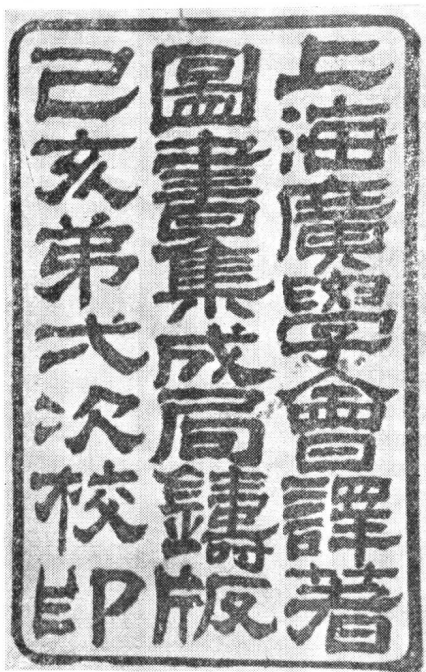 上海廣學會譯著
圖書集成局鑄版
己亥弟弍次校印